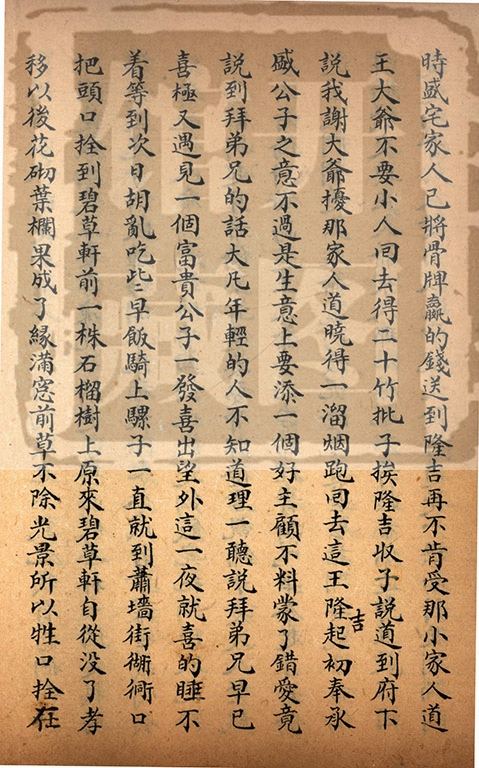 時盛宅家人已將骨牌贏的錢送到隆吉再不肯受那小家人道
王大爺不要小人回去得二十竹批子挨隆吉収子說道到府下
說我謝大爺擾那家人道曉得一溜烟跑回去這王隆吉起初奉承
盛公子之意不過是生意上要添一個好主顧不料蒙了錯愛竟
說到拜弟兄的話大凡年輕的人不知道理一聽說拜弟兄早已
喜極又遇見一個富貴公子一發喜出望外這一夜就喜的睡不
着等到次日胡亂吃些早飯騎上騾子一直就到蕭墻街衚衕口
把頭口拴到碧草軒前一株石榴樹上原來碧草軒自從没了孝
移以後花砌葉欄果成了緣滿窓前草不除光景所以牲口拴在